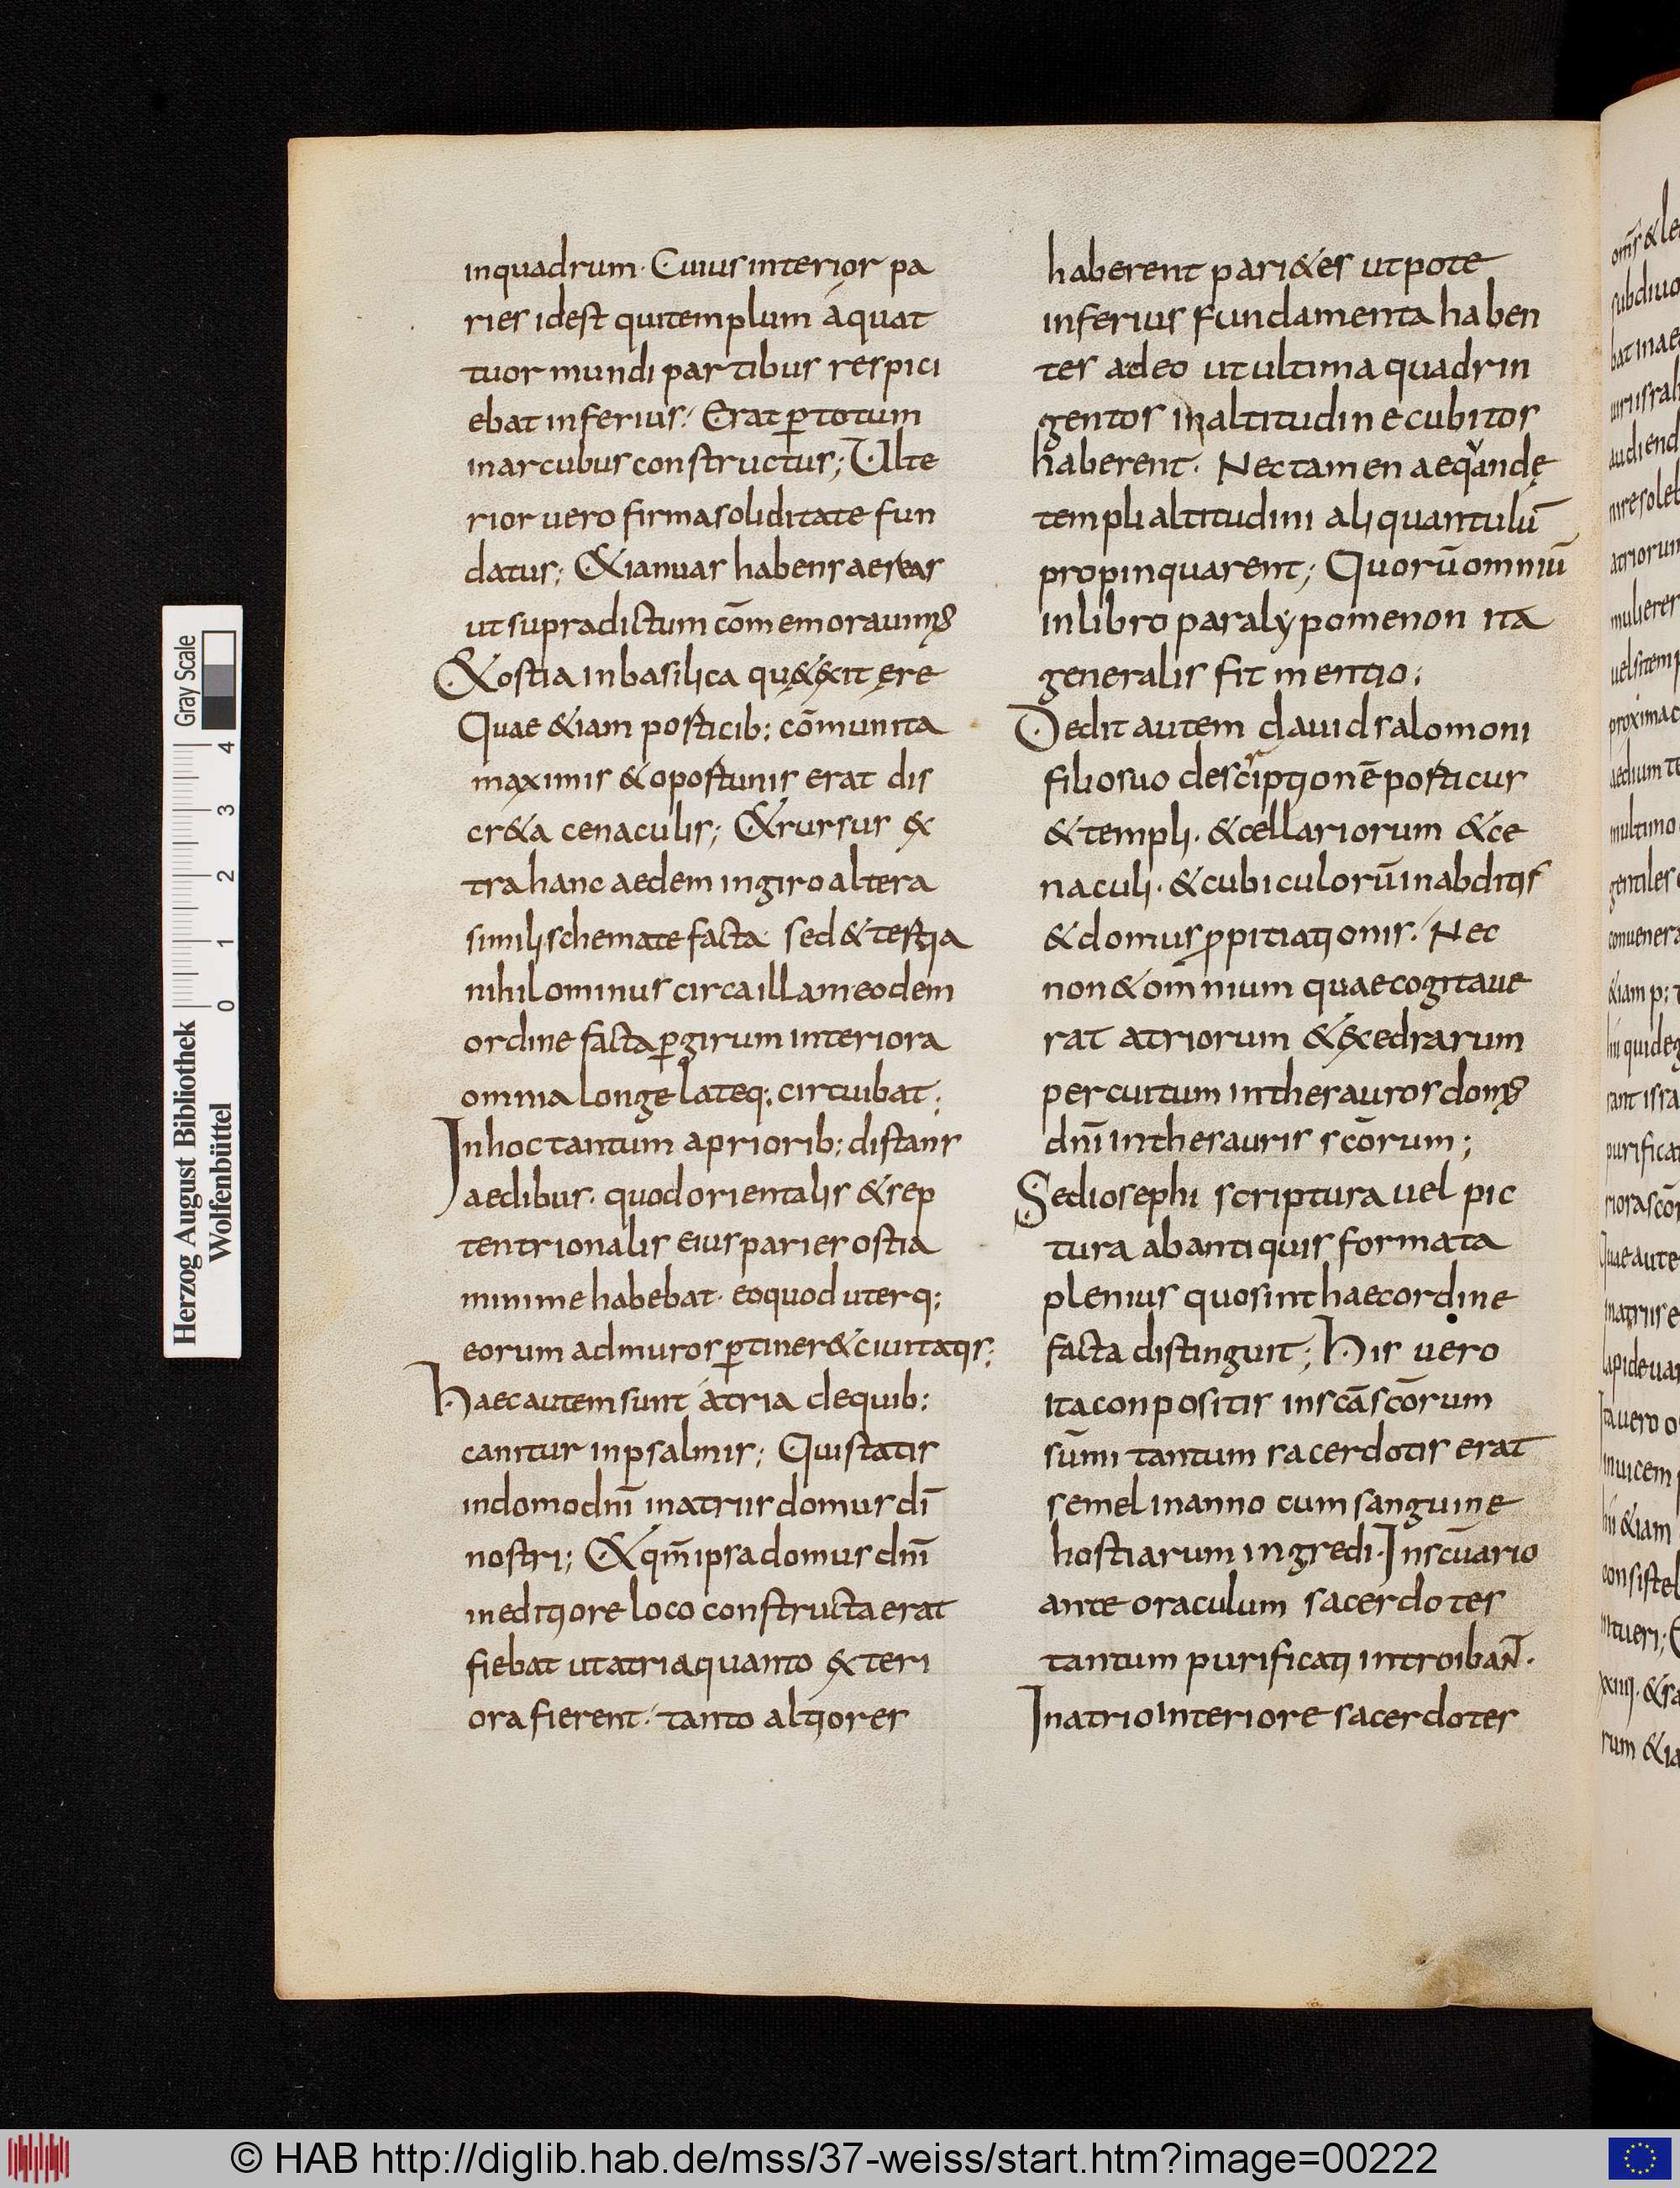 inquadrum. Cuius interior pa
ries idest quitemplum áquat
tuor mundi partibus respici
ebat inferius. Erat ꝑtotum
inarcubus constructus; Ulte
rior uero firmasoliditate fun
datus; &ianuas habens aereas
ut supradictum cōmemorauimꝰ
&ostia inbasilica quę&exit ęre
Quae &iam porticib; cōmunita
maximis &oportunis erat dis
cr&a cenaculis; &rursus ex
trahanc aedem ingiro altera
simili schemate facta sed &tertia
nihilominus circaillam eodem
ordine facta ꝑgirum interiora
omnia longe lateq; circuibat;
Inhoc tantum apriorib; distans
aedibus. quod orientalis &sep
tentrionalis eius paries ostia
minime habebat. eoquod uterq;
eorum admuros ꝑtiner& ciuitatis;
Haec autem sunt átria dequib;
canitur inpsalmis; Qui statis
indomo dnī inatriis domus dī
nostri; &qm̄ ipsa domus dnī
ineditiore loco constructa erat
fiebat utatria quanto exteri
ora fierent. tanto altiores
haberent pari&es utpote
inferius fundamenta haben
tes adeo ut ultima quadrin
gentos inaltitudine cubitos
haberent. Nectamen aequandę
templi altitudini aliquantulū
propinquarent; Quorū omniū
inlibro paralypomenon ita
generalis fit mentio;
Dedit autem dauid salomoni
filiosuo descriptionē porticus
&templi. &cellariorum &ce
naculi. &cubiculorū inabditis
&domus ꝓpitiationis. Nec
non &omnium quae cogitaue
rat atriorum &exedrarum
percuitum inthesauros domꝰ
dnī inthesauris scōrum;
Sed iosephi scriptura uel pic
tura abantiquis formata
plenius quosint haec ordine
facta distinguit; His uero
itaconpositis inscā scōrum
sūmi tantum sacerdotis erat
semel inanno cum sanguine
hostiarum ingredi. Inscūario
ante oraculum sacerdotes
tantum purificati introibant.
Inatrio interiore sacerdotes
Herzog August Bibliothek
Wolfenbüttel
0 1 2 3 4
Gray Scale
© HAB http://diglib.hab.de/mss/37-weiss/start.htm?image=00222